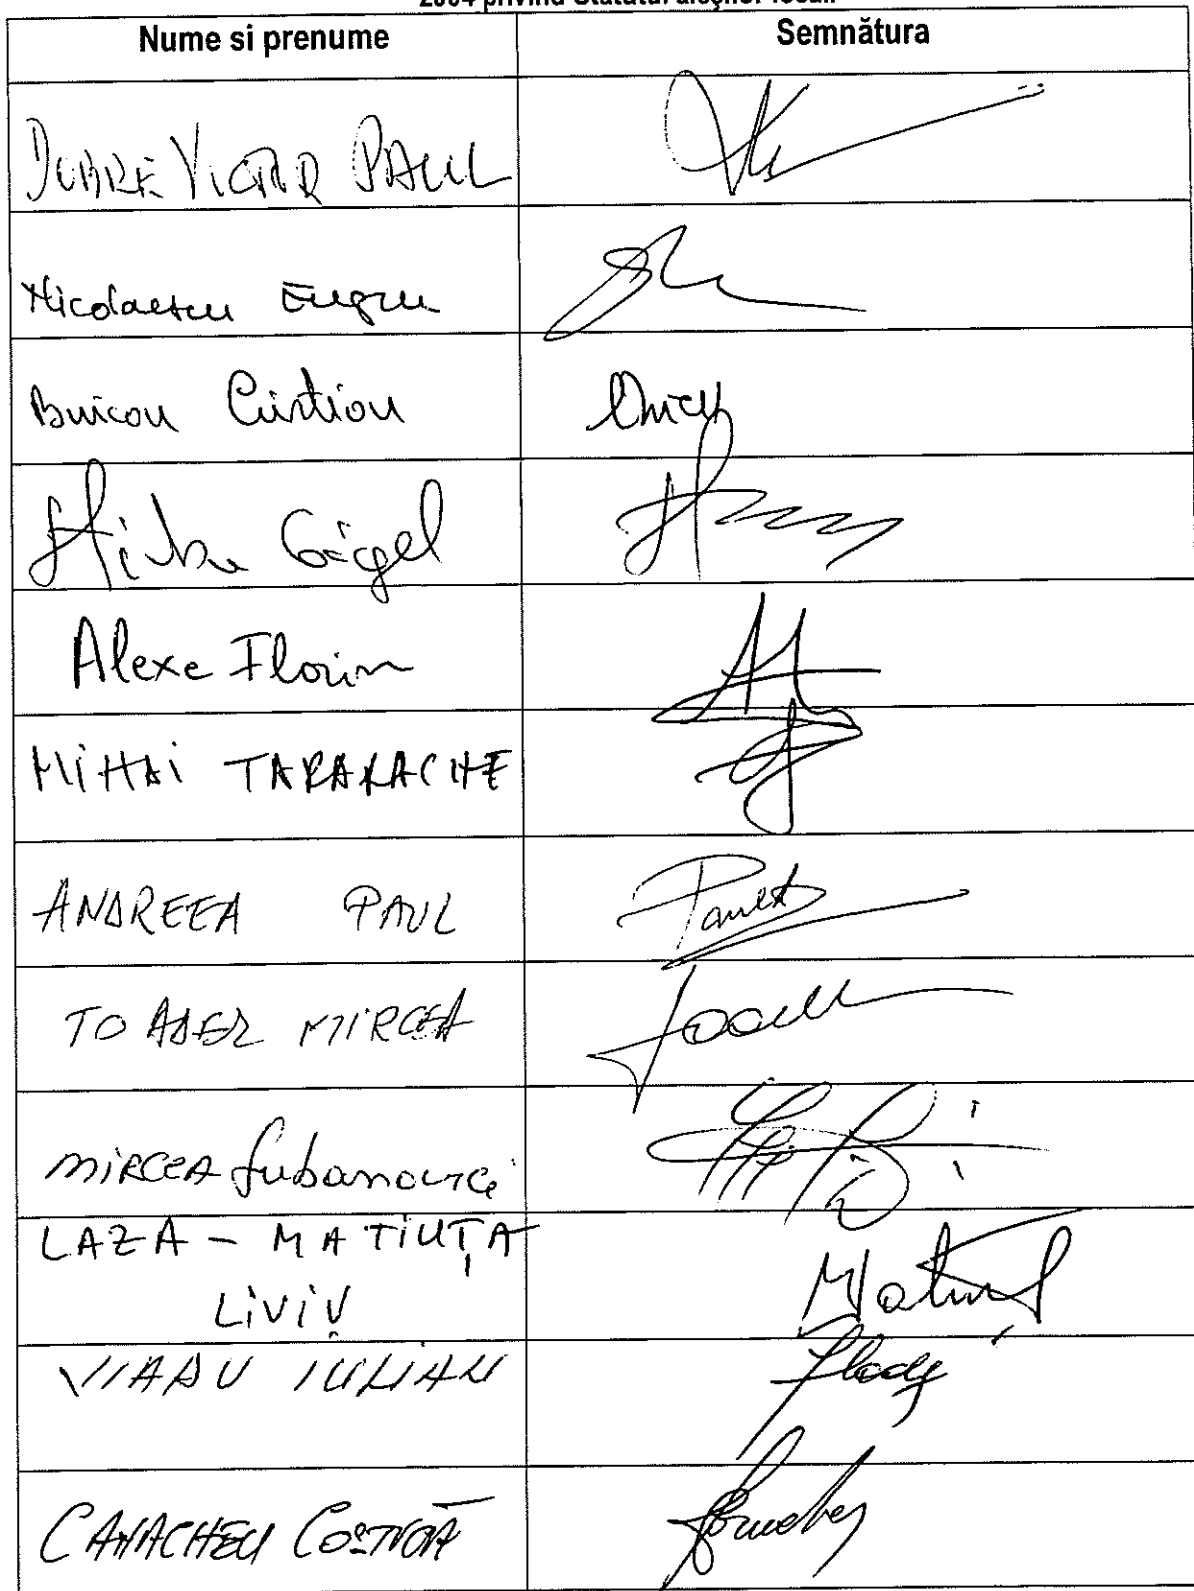 2004 privind Statutul aleşilor locali
Nume si prenume Semnătura
DOBRE VICTOR PAUL
Nicolaescu Eugen
Buican Cristian
Știrbu Gigel
Alexe Florin
MIHAI TARARACHE
ANDREEA PAUL
TOADER MIRCEA
MIRCEA Lubanovici
LAZA - MATIUȚA
LIVIU
VLADU IULIAN
CANACHEU COSTICĂ